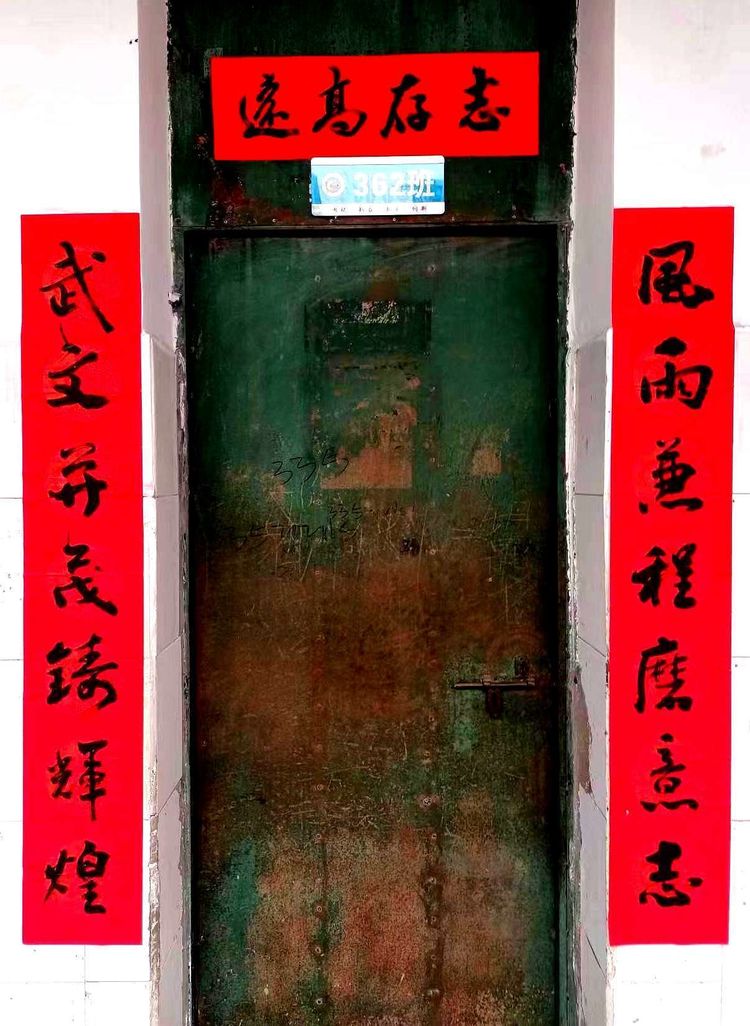 志存高远
362班
风雨兼程磨意志
武文并茂铸辉煌
335
335